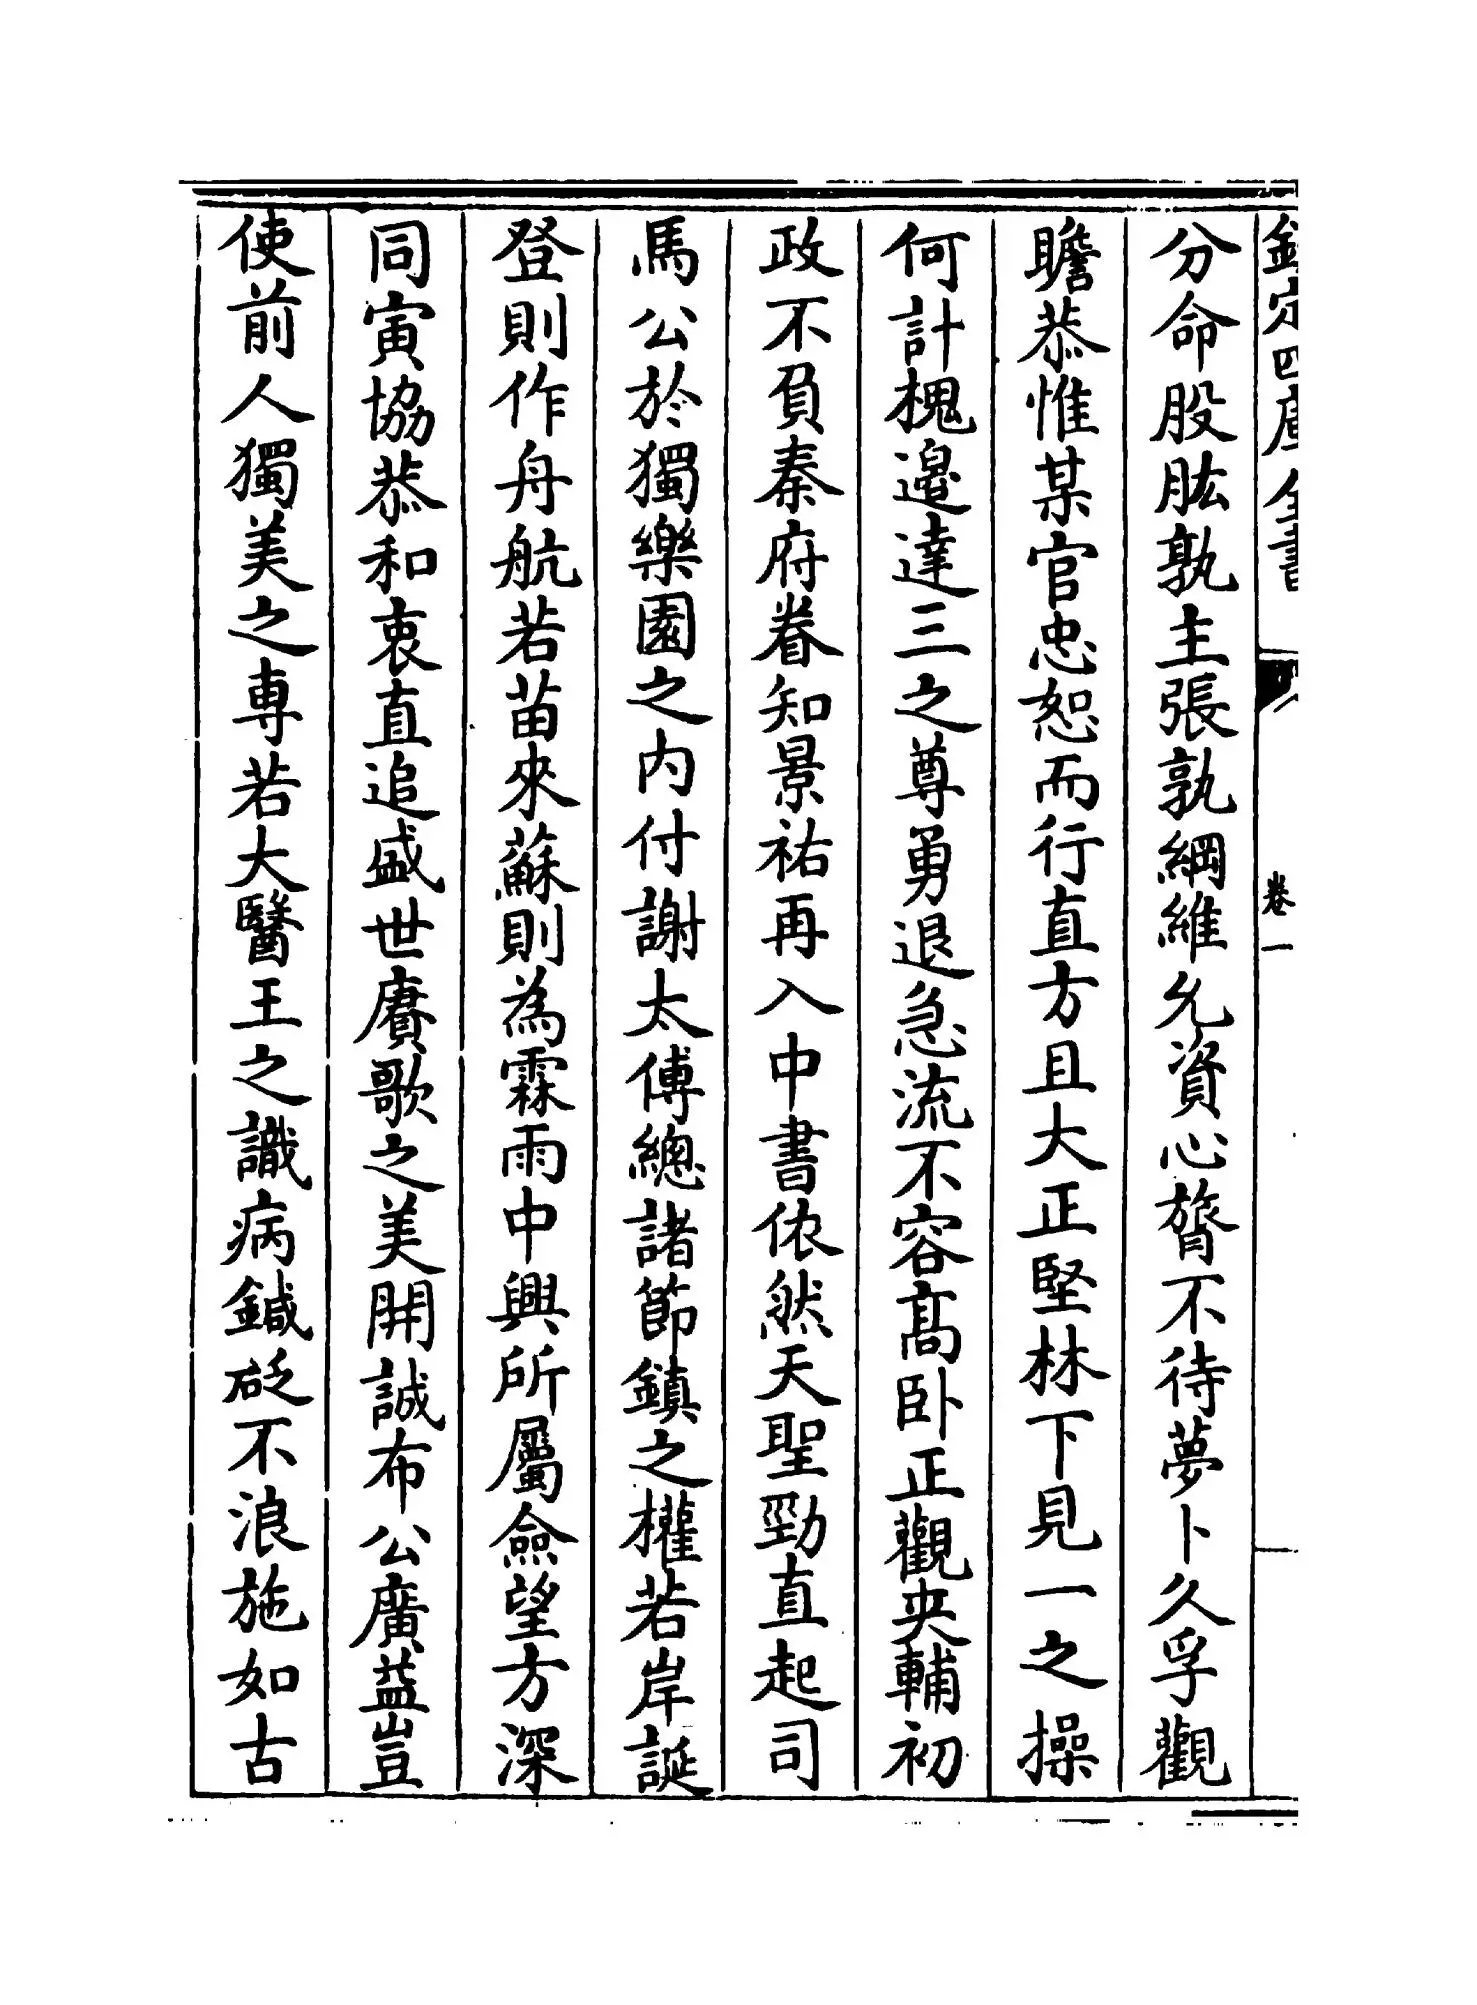 欽定四庫全書
卷一
分命股肱孰主張孰綱維允資心膂不待夢卜久孚觀
瞻恭惟某官忠恕而行直方且大正堅林下見一之操
何計槐邉達三之尊勇退急流不容髙卧正觀英輔初
政不負秦府眷知景祐再入中書依然天聖勁直起司
馬公於獨樂園之内付謝太傅總諸節鎮之權若岸誕
登則作舟航若苗來蘇則為霖雨中興所屬僉望方深
同寅協恭和衷直追盛世賡歌之美開誠布公廣益豈
使前人獨美之専若大醫王之識病鍼砭不浪施如古